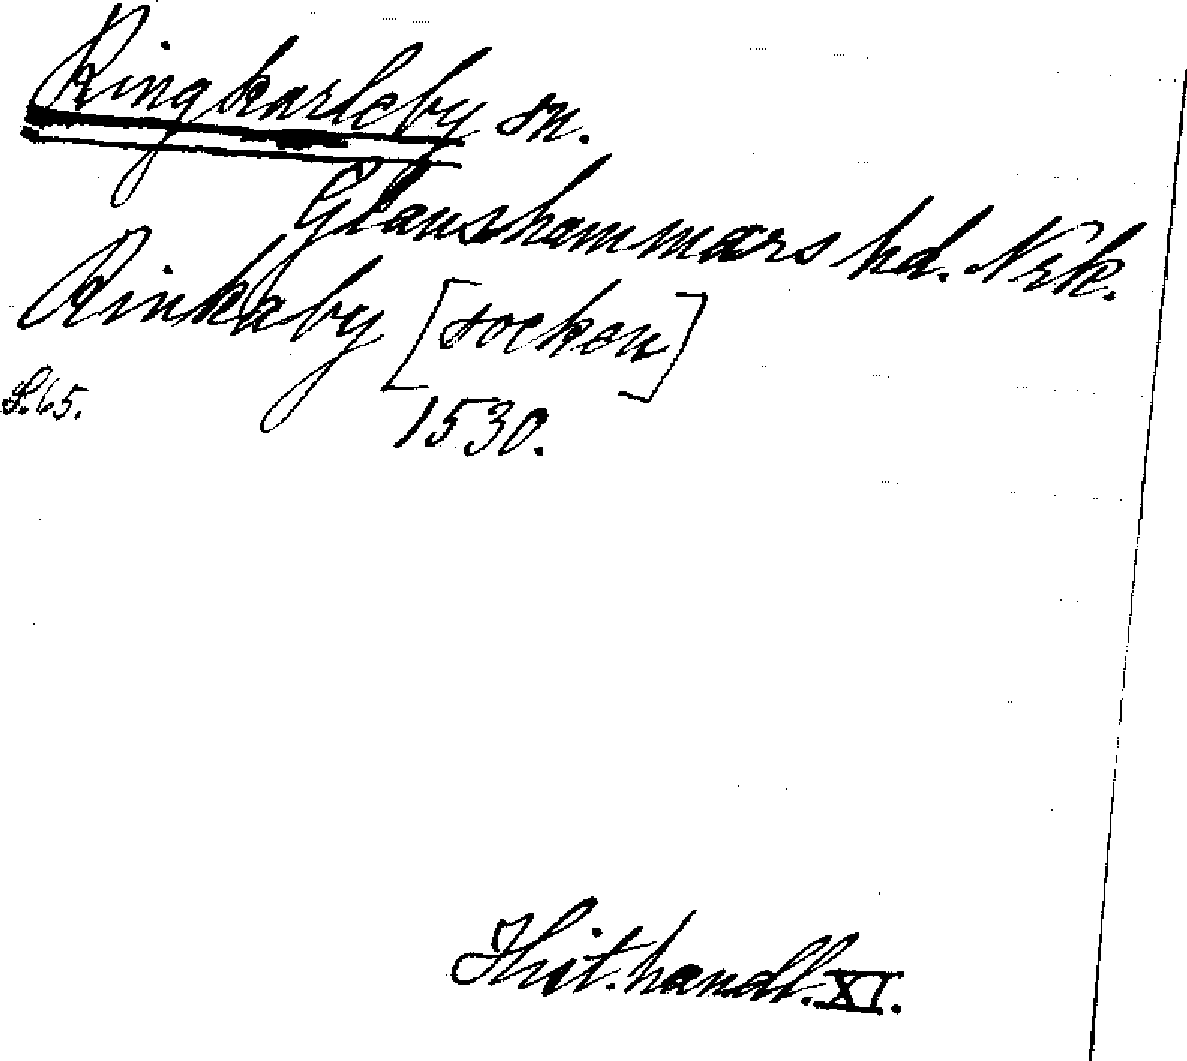 Ringkarleby sn.
Glanshammars hd. Nrk.
Rinkaby [socken]
S. 65.
1530.
Hist. handl. XI.